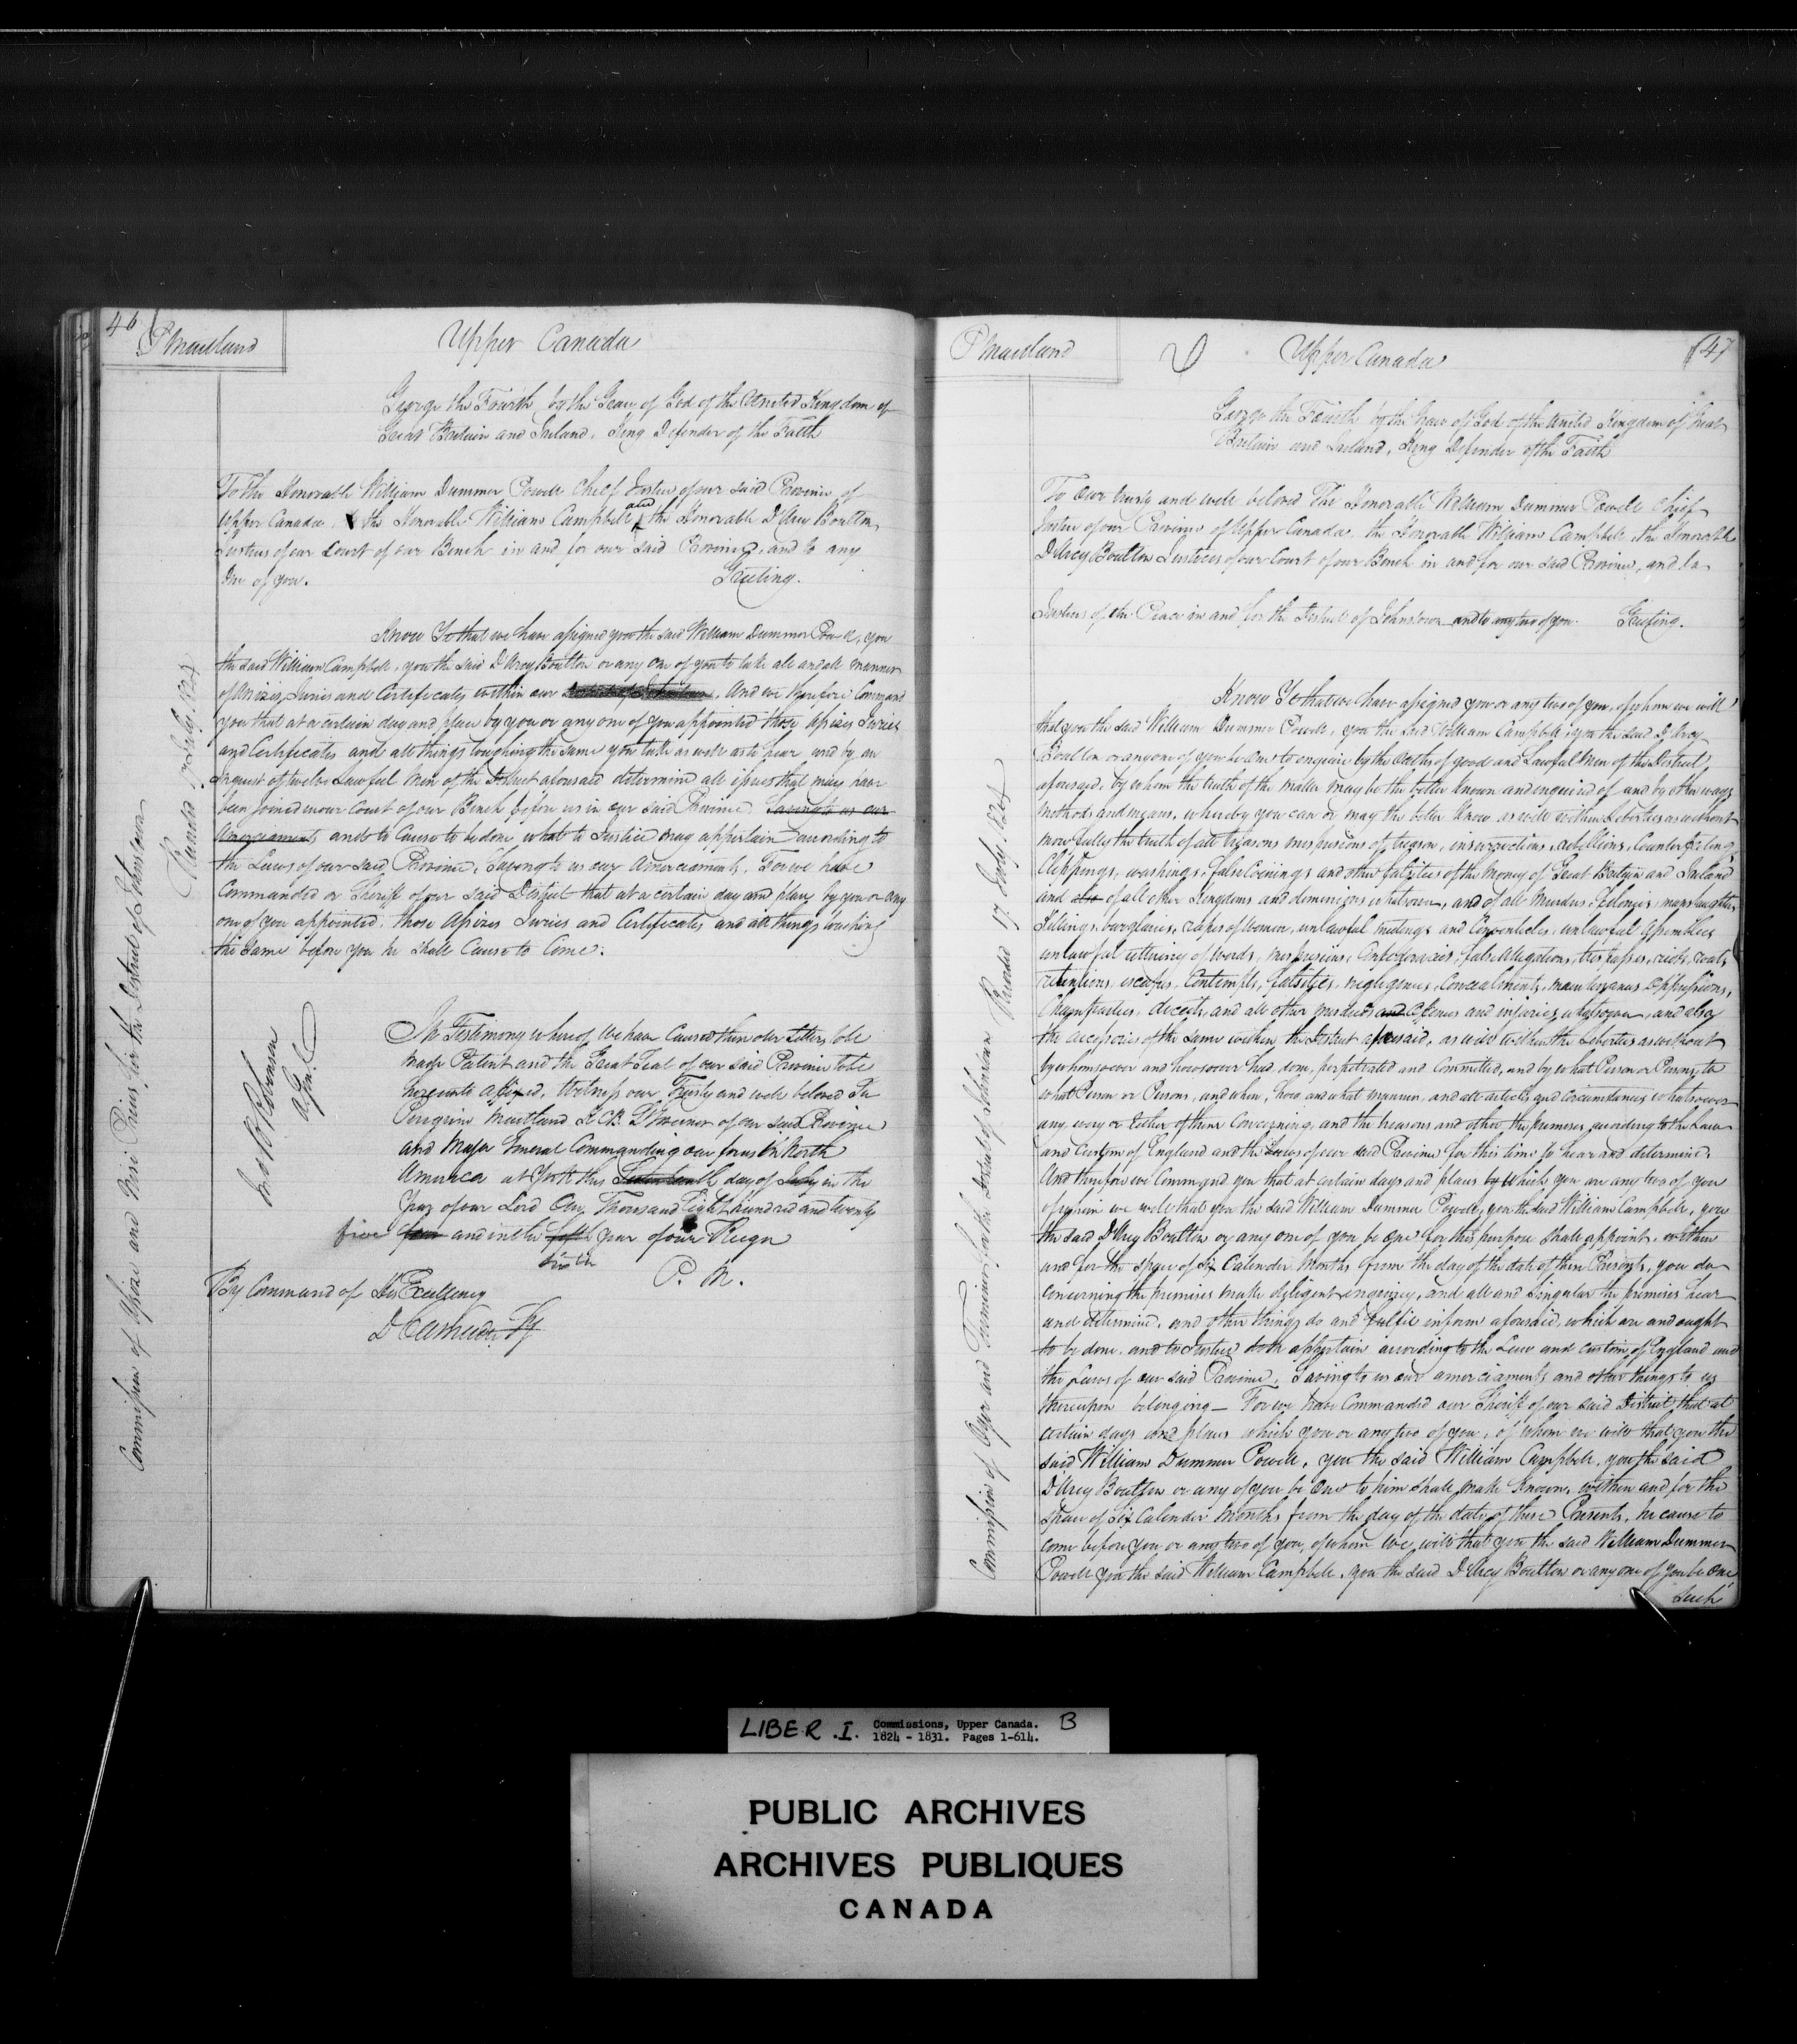 46
P Maitland
Upper Canada
George the Fourth by the Grace of God of the United Kingdom of
Great Britain and Ireland, King Defender of the Faith
To the Honorable William Dummer Powell Chief Justice of our said Province of
Upper Canada, the Honorable William Campbell and the Honorable D'Arcy Boulton
Justices of our Court of our Bench in and for our said Province, and to any
One of you. Greeting.
Know Ye that we have assigned you the said William Dummer Powell, you
the said William Campbell, you the said D'Arcy Boulton or any one of you to take all and all manner
of Assizes, Juries and Certificates within our District of Johnstown, And we therefore Command
you that at a certain day and place by you or any one of you appointed those Assizes Juries
and Certificates and all things touching the same you take as well as to hear and by an
Inquest of twelve Lawful Men of the District aforesaid determine all issues that may have
been joined in our Court of our Bench before us in our said Province Saving to us our
Amerciaments and to Cause to be done what to Justice may appertain according to
the Laws of our said Province, Saving to us our Amerciaments, For we have
Commanded or Sheriff of our said District that at a certain day and place by you or any
one of you appointed, those Assizes Juries and Certificates and all things touching
the same before you he Shall Cause to Come.
In Testimony whereof We have Caused these our Letters to be
made Patent and the Great Seal of our said Province to be
hereunto affixed, Witness our Trusty and well beloved Sir
Peregrine Maitland K.C.B. Lt Governor of our said Province
and Major General Commanding our forces in North
America at York this Seventeenth day of July in the
year of our Lord One Thousand Eight hundred and twenty
five four and in the fifth year of our Reign
sixth
P. M.
By Command of His Excellency
D Cameron Sy
Commission of Assize and Nisi Prius for the District of Johnstown
Recorded 17 July 1824
Jno B Robinson
A. Genl
P Maitland
Upper Canada
47
George the Fourth by the Grace of God of the United Kingdom of Great
Britain and Ireland, King Defender of the Faith
To Our trusty and well beloved The Honorable William Dummer Powell Chief
Justice of our Province of Upper Canada, the Honorable William Campbell the Honorable
D'Arcy Boulton Justices of our Court of our Bench in and for our said Province, and to
Justices of the Peace in and for the District of Johnstown and to any two of you. Greeting.
Know Ye that we have assigned you or any two of you, of whom we will
that you the said William Dummer Powell, you the said William Campbell, you the said D'Arcy
Boulton or any one of you be One to enquire by the Oaths of good and Lawful Men of the District
aforesaid, by whom the truth of the matter may be the better known and enquired of and by other ways
methods and means, whereby you can or may the better know as well within Liberties as without
more fully the truth of all treasons misprisions of treason, insurrections, rebellions, Counterfeitings
Clippings, washings, false Coinings and other falsities of the Money of Great Britain and Ireland
and also of all other Kingdoms and dominions whatsoever, and of all Murders, Felonies, manslaughters
Killings, burglaries, rapes of Women, unlawful meetings and Conventicles, unlawful Assemblies
unlawful uttering of Words, misprisions, Confederacies, false Allegations, trespasses, riots, routs,
retentions, escapes, Contempts, falsities, negligences, Concealments, maintenances Oppressions,
Champarties, deceits, and all other misdeeds and Offences and injuries whatsoever, and also
the accessories of the same within the District aforesaid, as well within the Liberties as without
by whomsoever and howsoever had, done, perpetrated and Committed, and by what Person or Persons, to
what Person or Persons, and when, how and what manner, and all articles and Circumstances whatsoever
any, every or Either of them Concerning, and the treasons and other the premises according to the Law
and Custom of England and the Laws of our said Province for this time to hear and determine.
And therefore we Command you that at certain days and places by which you or any two of you
of whom we will that you the said William Dummer Powell, you the said William Campbell, you
the said D'Arcy Boulton or any one of you be One for this purpose shall appoint, within
and for the space of Six Calender Months from the day of the date of these Presents, you do
concerning the premises make diligent inquiry, and all and Singular the premises hear
and determine, and other things do and fulfil in form aforesaid, which are and ought
to be done, and to Justice doth appertain according to the Law and custom of England and
the Laws of our said Province, Saving to us our amerciaments and other things to us
thereupon belonging — For we have Commanded our Sheriff of our said District that at
certain days and places which you or any two of you, of whom we will that you the
said William Dummer Powell, you the said William Campbell, you the said
D'Arcy Boulton or any of you be One to him shall make known, within and for the
space of Six Calender Months from the day of the date of these Presents, he cause to
come before you or any two of you, of whom We will that you the said William Dummer
Powell you the said William Campbell, you the said D'Arcy Boulton or any one of you be One
such
Commission of Oyer and Terminer for the District of Johnstown Recorded 17 July 1824
LIBER .I. Commissions, Upper Canada. B
1824 - 1831. Pages 1-614.
PUBLIC ARCHIVES
ARCHIVES PUBLIQUES
CANADA